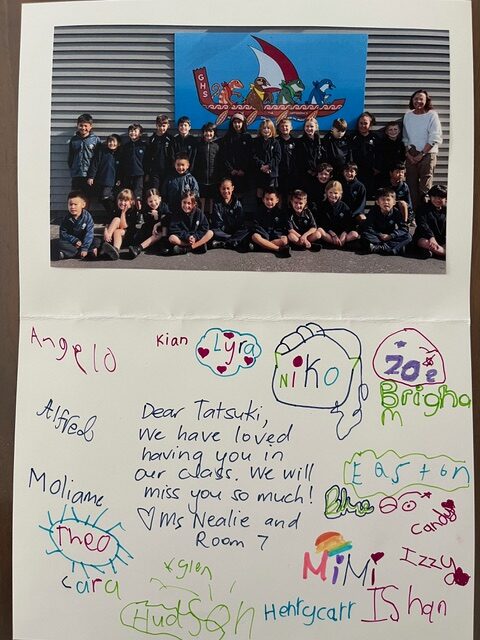 GHS
Angelo
Kian
Lyra
Niko
Zoe
Brigham
Alfred
Dear Tatsuki,
We have loved
having you in
our class. We will
miss you so much!
♡ Ms Nealie and
Room 7
Easton
Blue
Candy
Moliame
Theo
Cara
xglen
Hudson
MiMi
Izzy
Henrycarr
IShan